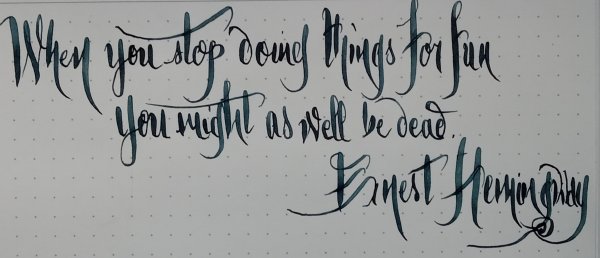 When you stop doing things for fun
you might as well be dead.
Ernest Hemingway